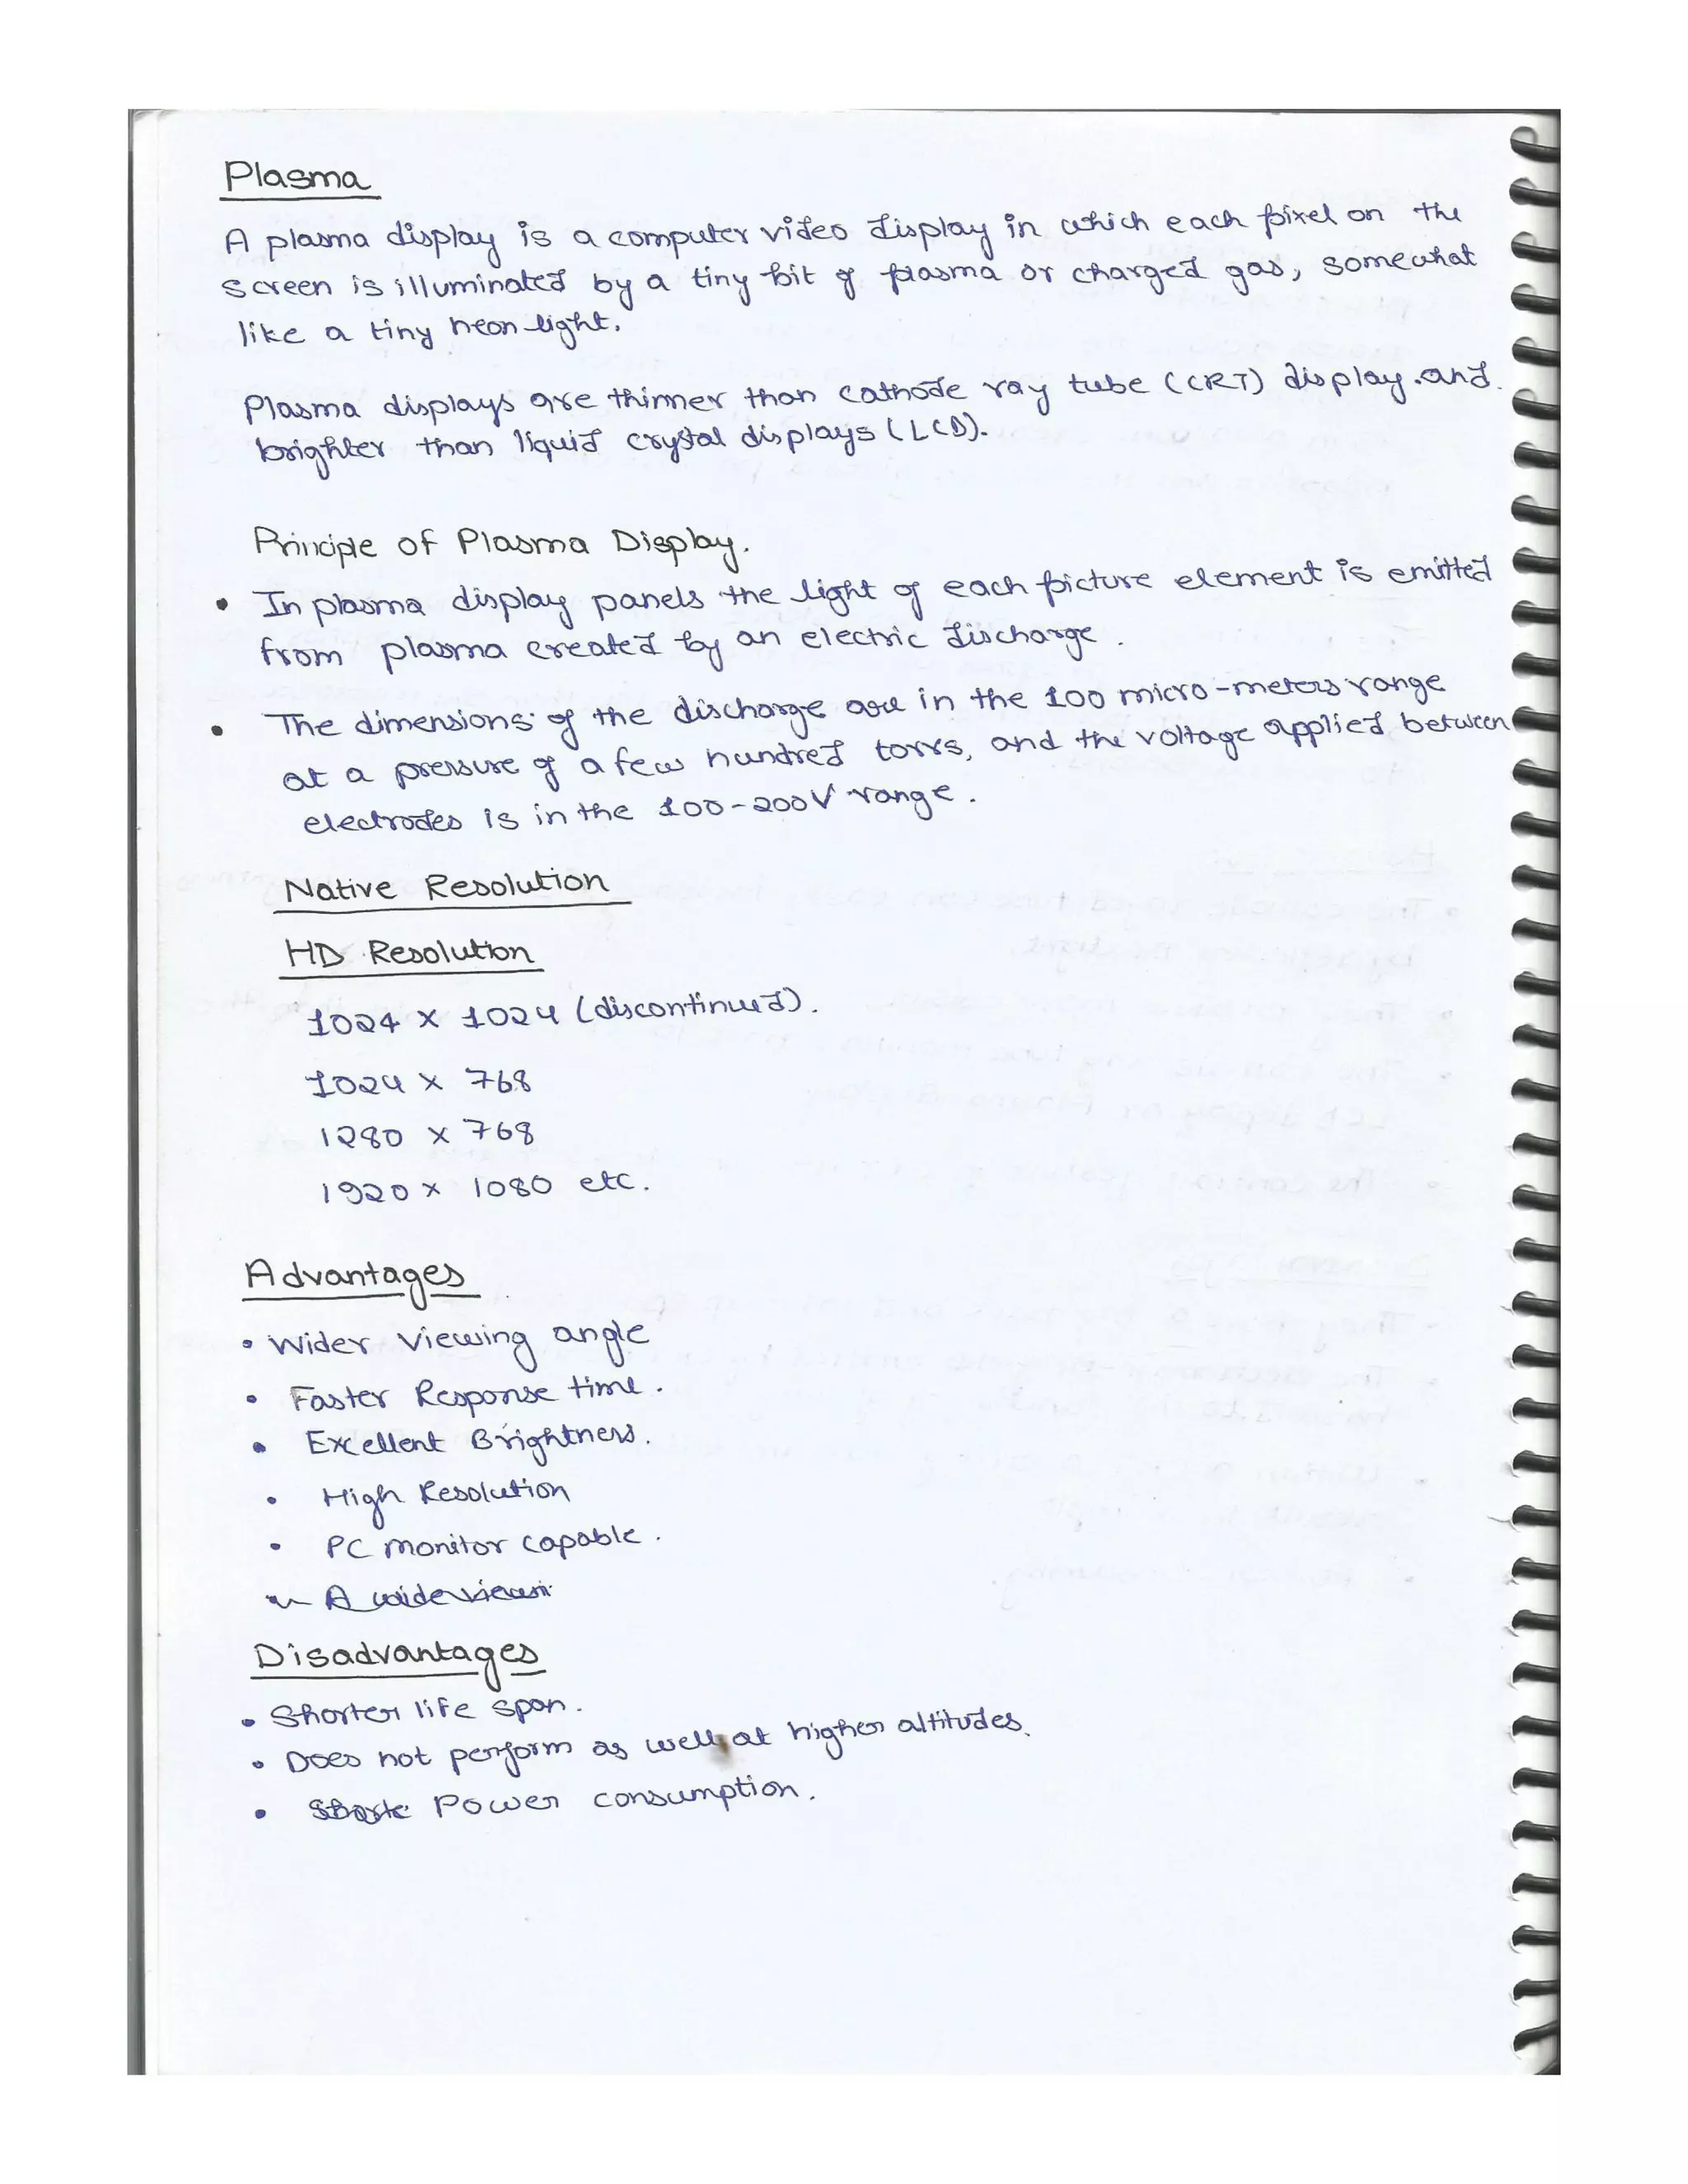 Plasma
A plasma display is a computer video display in which each pixel on the
screen is illuminated by a tiny bit of plasma or charged gas, somewhat
like a tiny neon light.
Plasma displays are thinner than cathode ray tube (CRT) display and
brighter than liquid crystal displays (LCD).
Principle of Plasma Display.
• In plasma display panels the light of each picture element is emitted
from plasma created by an electric discharge.
• The dimensions of the discharge are in the 100 micro-meters range
at a pressure of a few hundred torrs, and the voltage applied between
electrodes is in the 100-200V range.
Native Resolution
HD Resolution
1024 × 1024 (discontinued).
1024 × 768
1280 × 768
1920 × 1080 etc.
Advantages
• Wider viewing angle
• Faster Response time.
• Excellent Brightness.
• High Resolution
• PC monitor capable.
A wide
Disadvantages
• Shorter life span.
• Does not perform as well at higher altitudes.
• Power consumption.